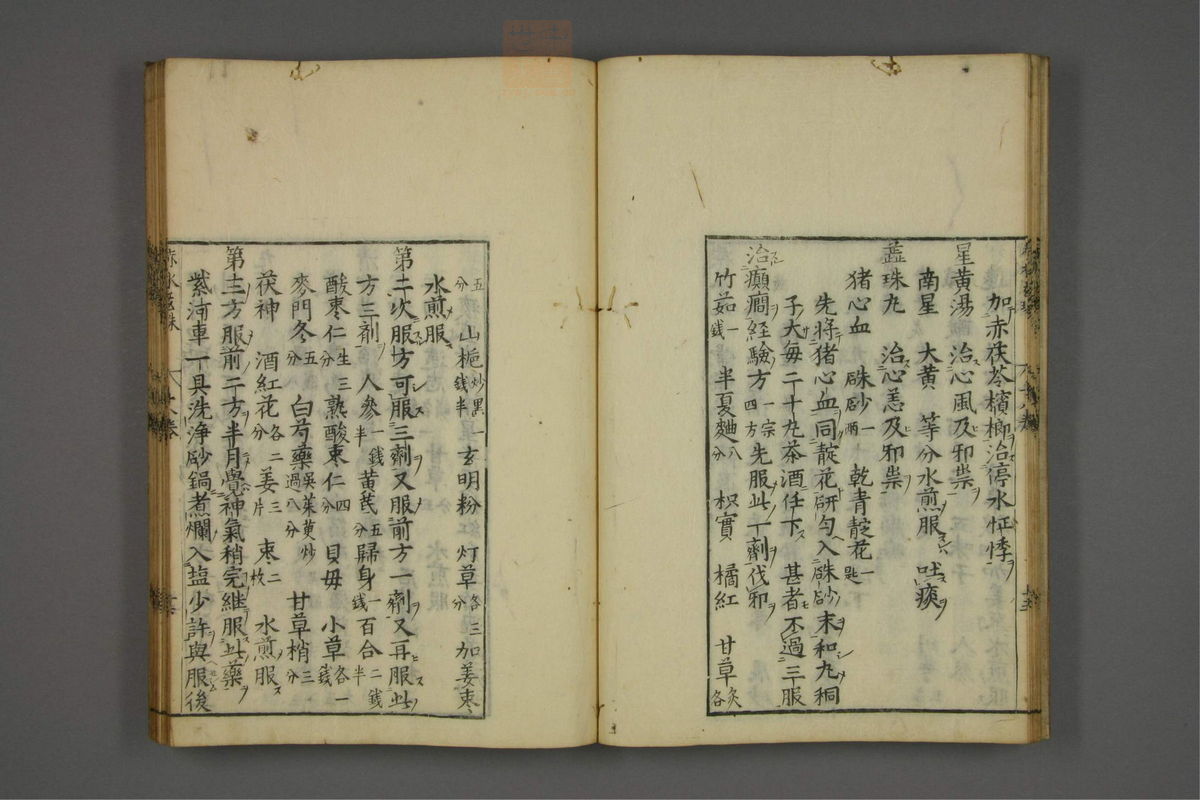 加赤茯苓檳榔治停水怔悸
星黄湯　治心風及邪祟
南星　大黄　等分水煎服　吐痰
蘂珠丸　治心恙及邪祟
猪心血　硃砂一兩　乾青靛花一匙
先将猪心血同靛花研勻入硃砂末和丸桐
子大每二十丸茶酒任下　甚者不過三服
治癲癇経驗方一宗四方先服此一劑伐邪
竹茹一錢　半夏麯八分　枳實　橘紅　甘草炙各
五分　山梔炒黒一錢半　玄明粉　灯草各三分　加姜枣
水煎服
第二次服方可服三劑又服前方一劑又再服此
方三剤　人參一錢半　黄芪五分　歸身一錢　百合二錢半
酸枣仁生三分　熟酸枣仁四分　貝母　小草各一錢
麥門冬五分八　白芍藥吳茱萸炒過八分　甘草梢三分
茯神　酒紅花各二分　姜三片　枣二枚　水煎服
第三方服前二方半月覺神氣稍完継服此藥
紫河車一具洗浄砂鍋煮爛入塩少許與服後
赤水玄珠